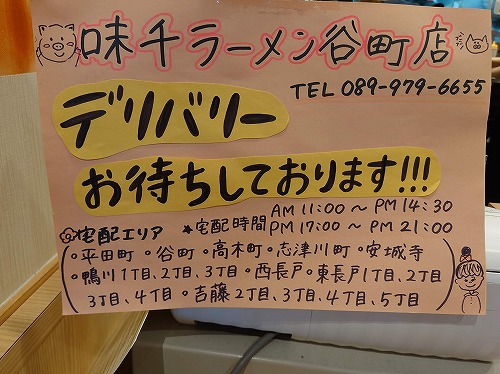 味千ラーメン谷町店
TEL 089-979-6655
デリバリー
お待ちしております!!!
宅配エリア ★宅配時間 AM 11:00 〜 PM 14:30
PM 17:00 〜 PM 21:00
・平田町・谷町・高木町・志津川町・安城寺
・鴨川1丁目、2丁目、3丁目・西長戸・東長戸1丁目、2丁目
3丁目、4丁目・吉藤2丁目、3丁目、4丁目、5丁目